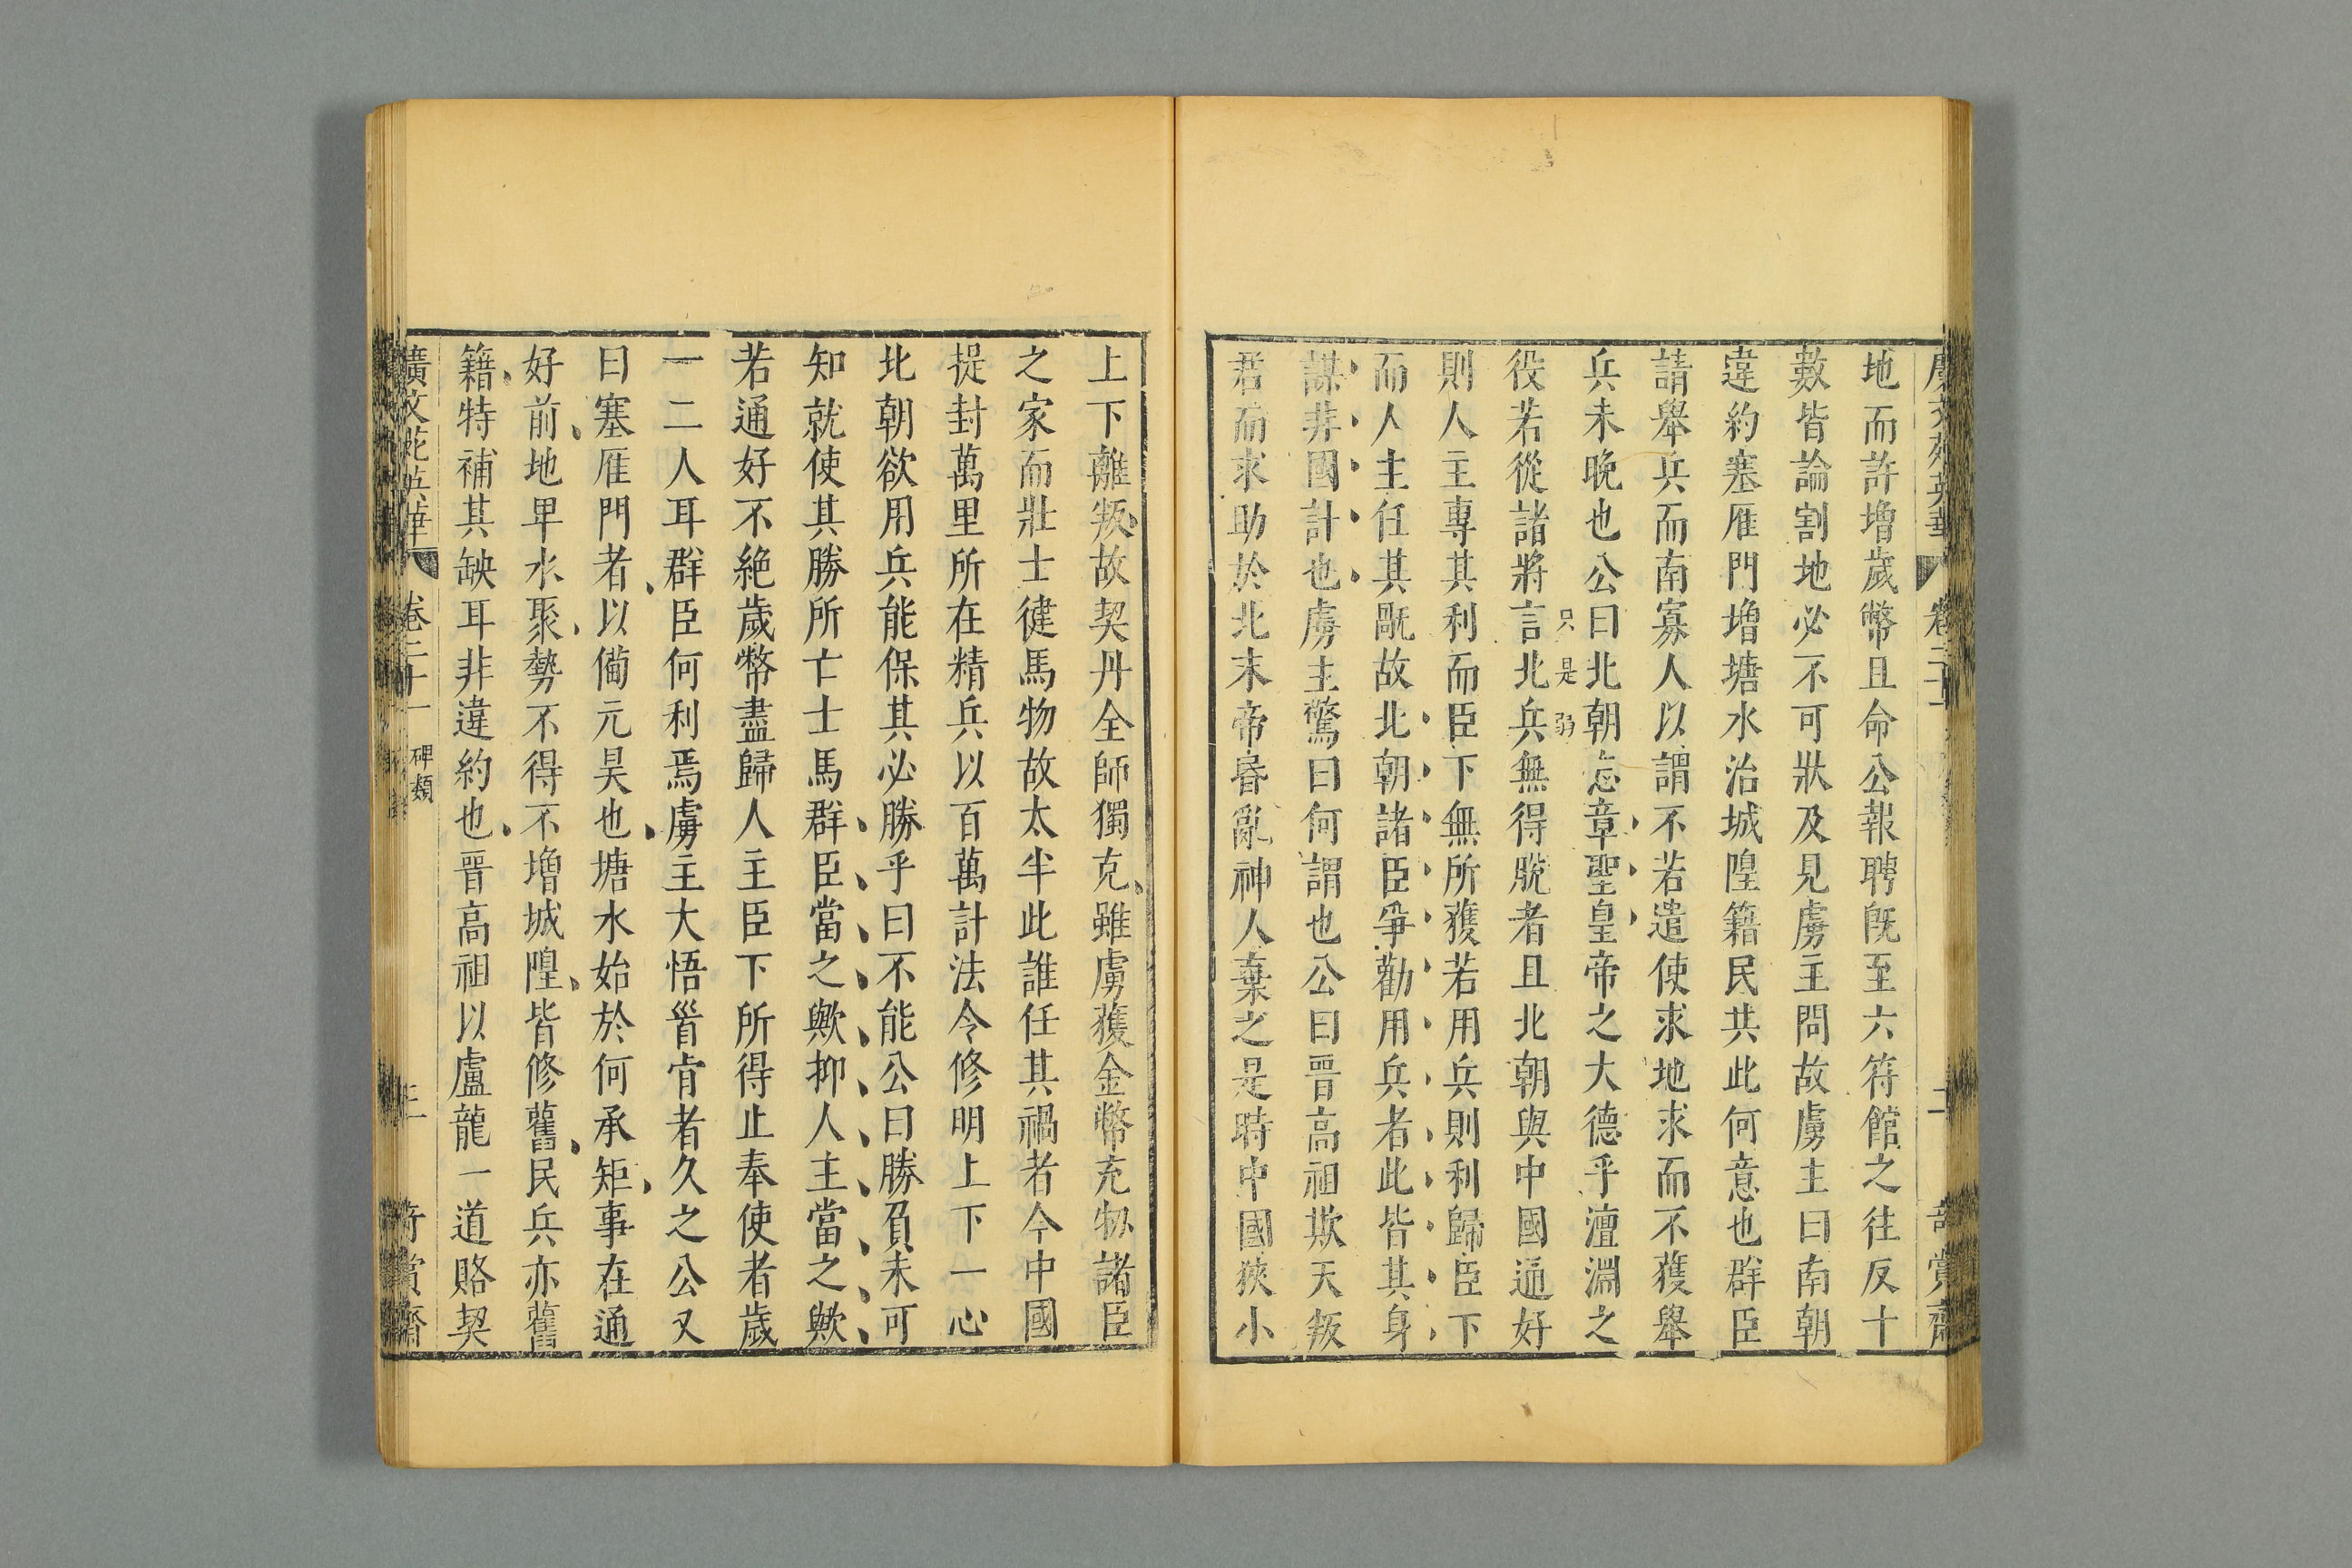 地而許增歲幣且命公報聘旣至六符館之往反十
數皆論割地必不可狀及見虜主問故虜主曰南朝
違約塞雁門增塘水治城隍籍民共此何意也群臣
請舉兵而南寡人以謂不若遣使求地求而不獲舉
兵未晚也公曰北朝忘章聖皇帝之大德乎澶淵之
只是弱
役若從諸將言北兵無得脫者且北朝與中國通好
則人主專其利而臣下無所獲若用兵則利歸臣下
而人主任其禍故北朝諸臣爭勸用兵者此皆其身
謀非國計也虜主驚曰何謂也公曰晉高祖欺天叛
君而求助於北末帝昏亂神人棄之是時中國狹小
上下離叛故契丹全師獨克雖虜獲金幣充牣諸臣
之家而壯士健馬物故太半此誰任其禍者今中國
提封萬里所在精兵以百萬計法令修明上下一心
北朝欲用兵能保其必勝乎曰不能公曰勝負未可
知就使其勝所亡士馬群臣當之歟抑人主當之歟
若通好不絕歲幣盡歸人主臣下所得止奉使者歲
一二人耳群臣何利焉虜主大悟首肯者久之公又
曰塞雁門者以備元昊也塘水始於何承矩事在通
好前地卑水聚勢不得不增城隍皆修舊民兵亦舊
籍特補其缺耳非違約也晉高祖以盧龍一道賂契
廣文苑英華 卷二十一 碑類 三 奇賞齋